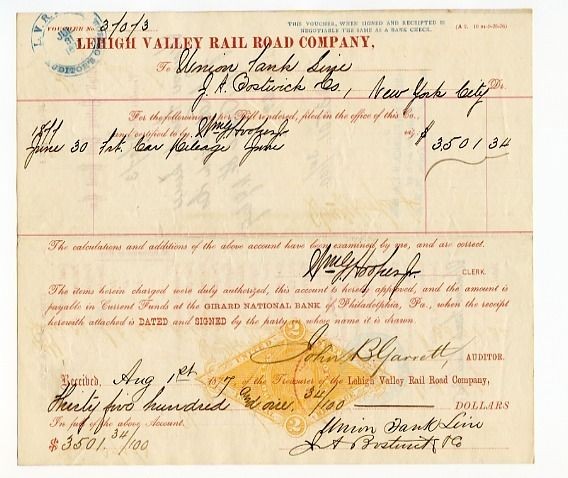 VOUCHER No. 37073
THIS VOUCHER, WHEN SIGNED AND RECEIPTED IS
NEGOTIABLE THE SAME AS A BANK CHECK.
L. V. R. R.
AUDITOR'S
LEHIGH VALLEY RAIL ROAD COMPANY,
To Union Tank Line
J. A. Bostwick & Co., New York City Dr.
For the following as per Bill rendered, filed in the office of this Co.,
and certified to by Wm G Hooper Jr viz:
1877
June 30 Frt. Car Mileage June $ 3501 34
The calculations and additions of the above account have been examined by me, and are correct.
Wm G Hooper Jr CLERK.
The items herein charged were duly authorized, this account is hereby approved, and the amount is
payable in Current Funds at the GIRARD NATIONAL BANK of Philadelphia, Pa., when the receipt
herewith attached is DATED and SIGNED by the party in whose name it is drawn.
John B. Garrett, AUDITOR.
Received, Aug 1st 1877 of the Treasurer of the Lehigh Valley Rail Road Company,
Thirty five hundred and one 34/100 DOLLARS
In full of the above Account.
Union Tank Line
$ 3501.34/100
J A Bostwick & Co